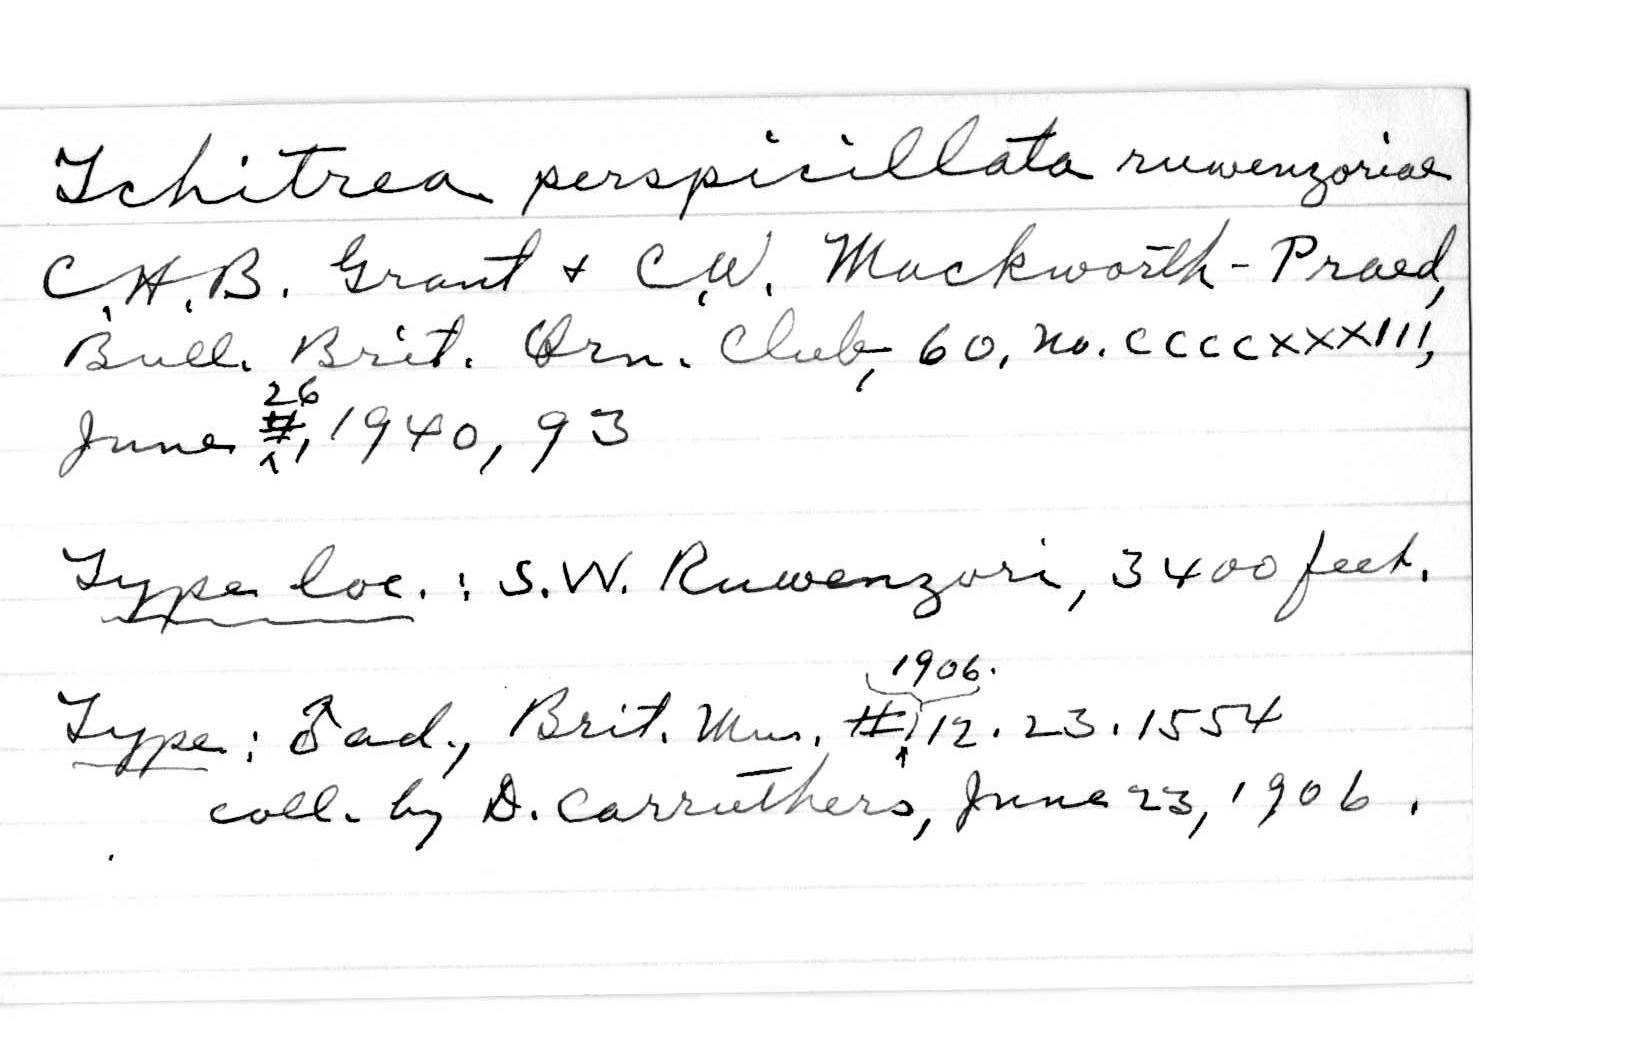 Tchitrea perspicillata ruwenzoriae
C.H.B. Grant + C.W. Mackworth-Praed,
Bull. Brit. Orn. Club, 60, no. CCCCXXXIII,
June 26, 1940, 93
Type loc.: S.W. Ruwenzori, 3400 feet.
Type: ♂ ad., Brit. Mus. # 1906.12.23.1554
coll. by D. Carruthers, June 23, 1906.